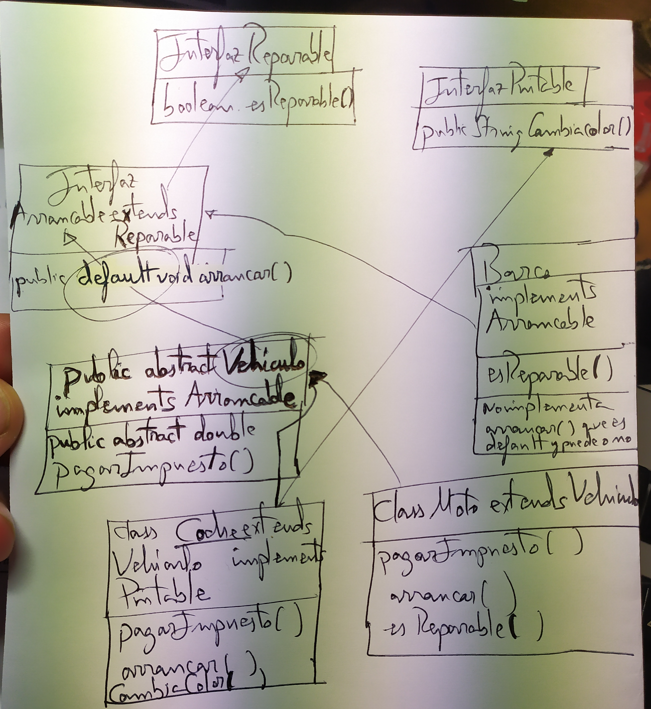 Interfaz Reparable
boolean esReparable()
Interfaz Pintable
public String CambiaColor()
Interfaz
Arrancable extends
Reparable
public default void arrancar()
Barco
implements
Arrancable
esReparable()
No implementa
arrancar() que es
default y puede o no
public abstract Vehiculo
implements Arrancable
public abstract double
pagarImpuesto()
class Coche extends
Vehiculo implements
Pintable
pagarImpuesto()
arrancar()
CambiaColor()
class Moto extends Vehiculo
pagarImpuesto()
arrancar()
esReparable()